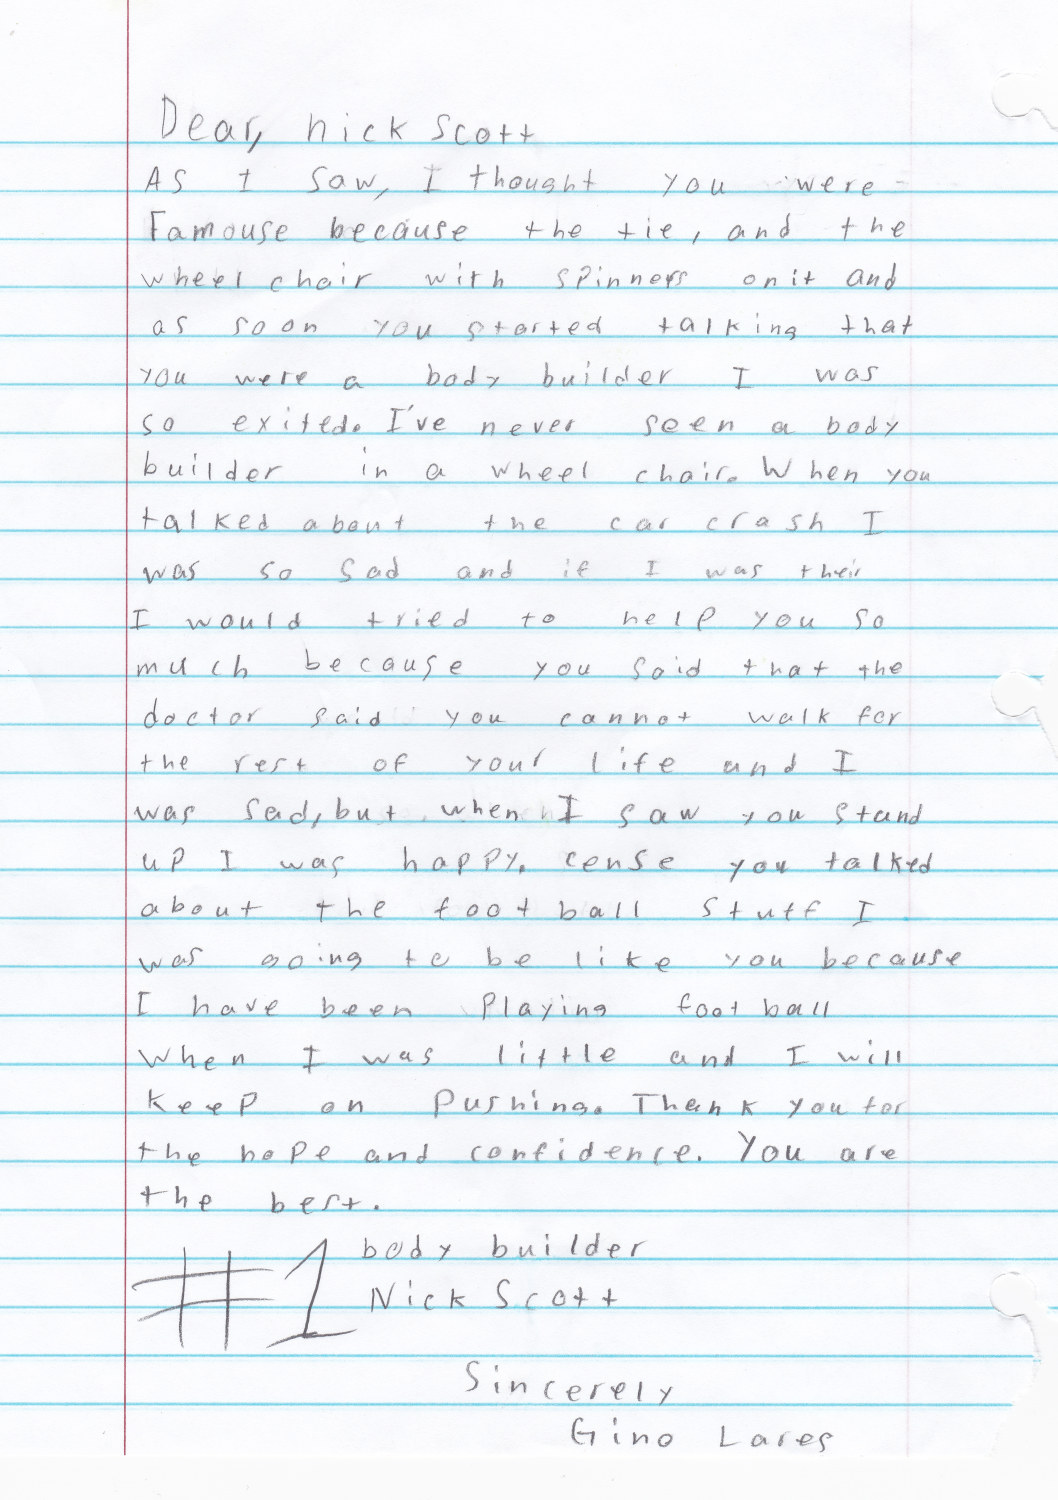 Dear, nick Scott
As I saw, I thought you were
Famouse because the tie, and the
wheel chair with spinners on it and
as soon you started talking that
you were a body builder I was
so exited. I've never seen a body
builder in a wheel chair. When you
talked about the car crash I
was so sad and if I was their
I would tried to help you so
much because you said that the
doctor said you cannot walk for
the rest of your life and I
was sad, but when I saw you stand
up I was happy. cense you talked
about the foot ball stuff I
was going to be like you because
I have been Playing foot ball
when I was little and I will
keep on pushing. Thank you for
the hope and confidence. You are
the best.
#1 body builder
Nick Scott
Sincerely
Gino Lares